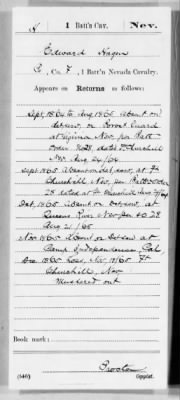 H 1 Batt'n Cav. Nev.
Edward Hagen
Co. F, 1 Batt'n Nevada Cavalry.
Appears on Returns as follows:
Sept. 1864 to Aug. 1865 absent on
detserv, on Provost Guard
at Virginia Nev. per Batt
order No 28 dated Ft Churchill
Nev. Aug 24/64
Sept 1865 absent on det serv, at Ft
Churchill Nev, per Batt order
28 dated at Ft Churchill Aug 24/64
Oct, 1865 absent on det serv, at
Queens River Nev per SO 28
Aug 21/65
Nov 1865 absent on det serv at
Camp Independence, Cal
Dec 1865 Loss, Nov 18/65 Ft
Churchill, Nev
Mustered out
Book mark:
(546) Copyist.